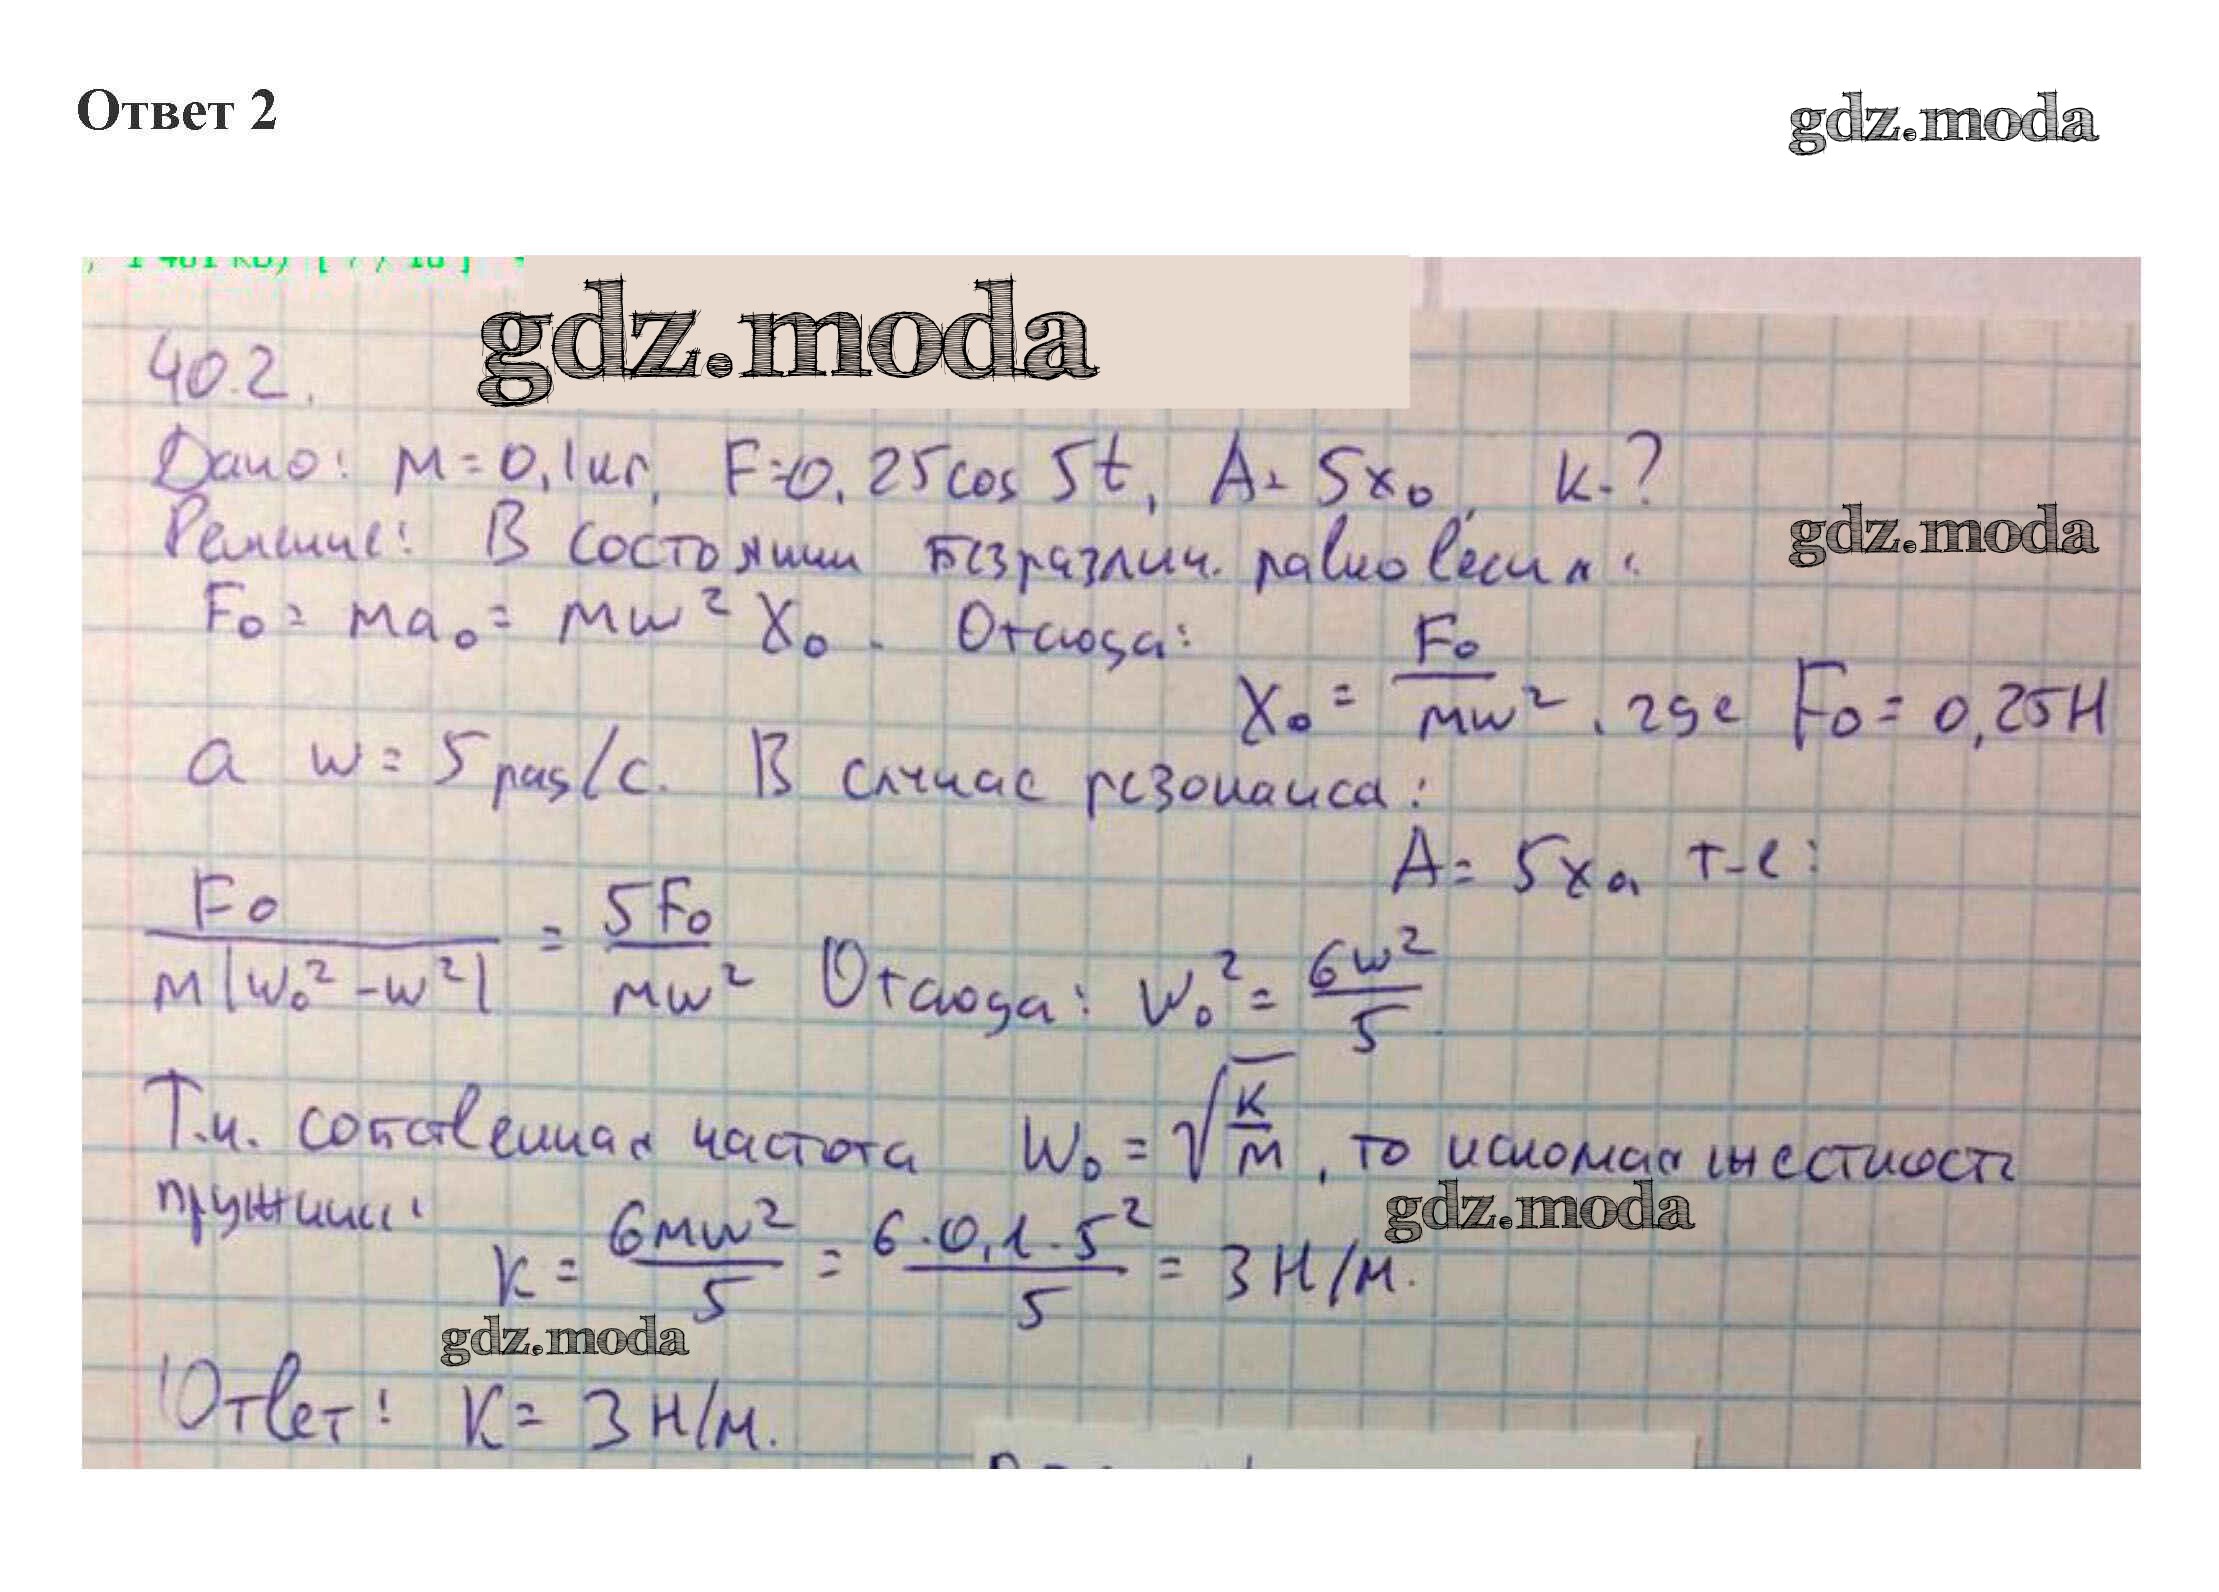 Ответ 2
gdz.moda
gdz.moda
40.2.
Дано: m=0,1кг, F=0,25cos 5t, A=5x₀, k-?
gdz.moda
Решение: В состоянии безразлич. равновесия:
F₀ = ma₀ = mw² X₀. Отсюда:
X₀ = F₀/mw², где F₀ = 0,25Н
а w = 5 рад/с. В случае резонанса:
A = 5x₀, т-е:
F₀/m|w₀²-w²| = 5F₀/mw² Отсюда: w₀² = 6w²/5
Т.к. собственная частота w₀ = √k/m, то искомая жесткость
пружины:
gdz.moda
k = 6mw²/5 = 6·0,1·5²/5 = 3 Н/м.
gdz.moda
Ответ: K = 3 Н/м.